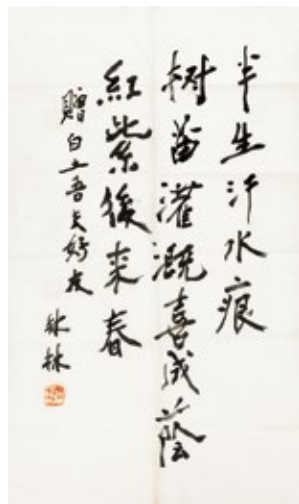 半生汗水痕
树苗灌溉喜成荫
红紫後来春
赠白土吾夫妇友
林林